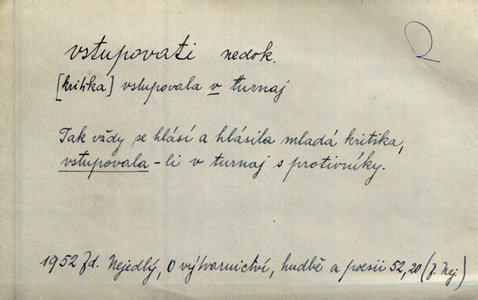 vstupovati nedok.
[kritika] vstupovala v turnaj
Tak vždy se hlásí a hlásila mladá kritika,
vstupovala-li v turnaj s protivníky.
1952 Zd. Nejedlý, O výtvarnictví, hudbě a poesii 52, 20 (Z. Nej.)